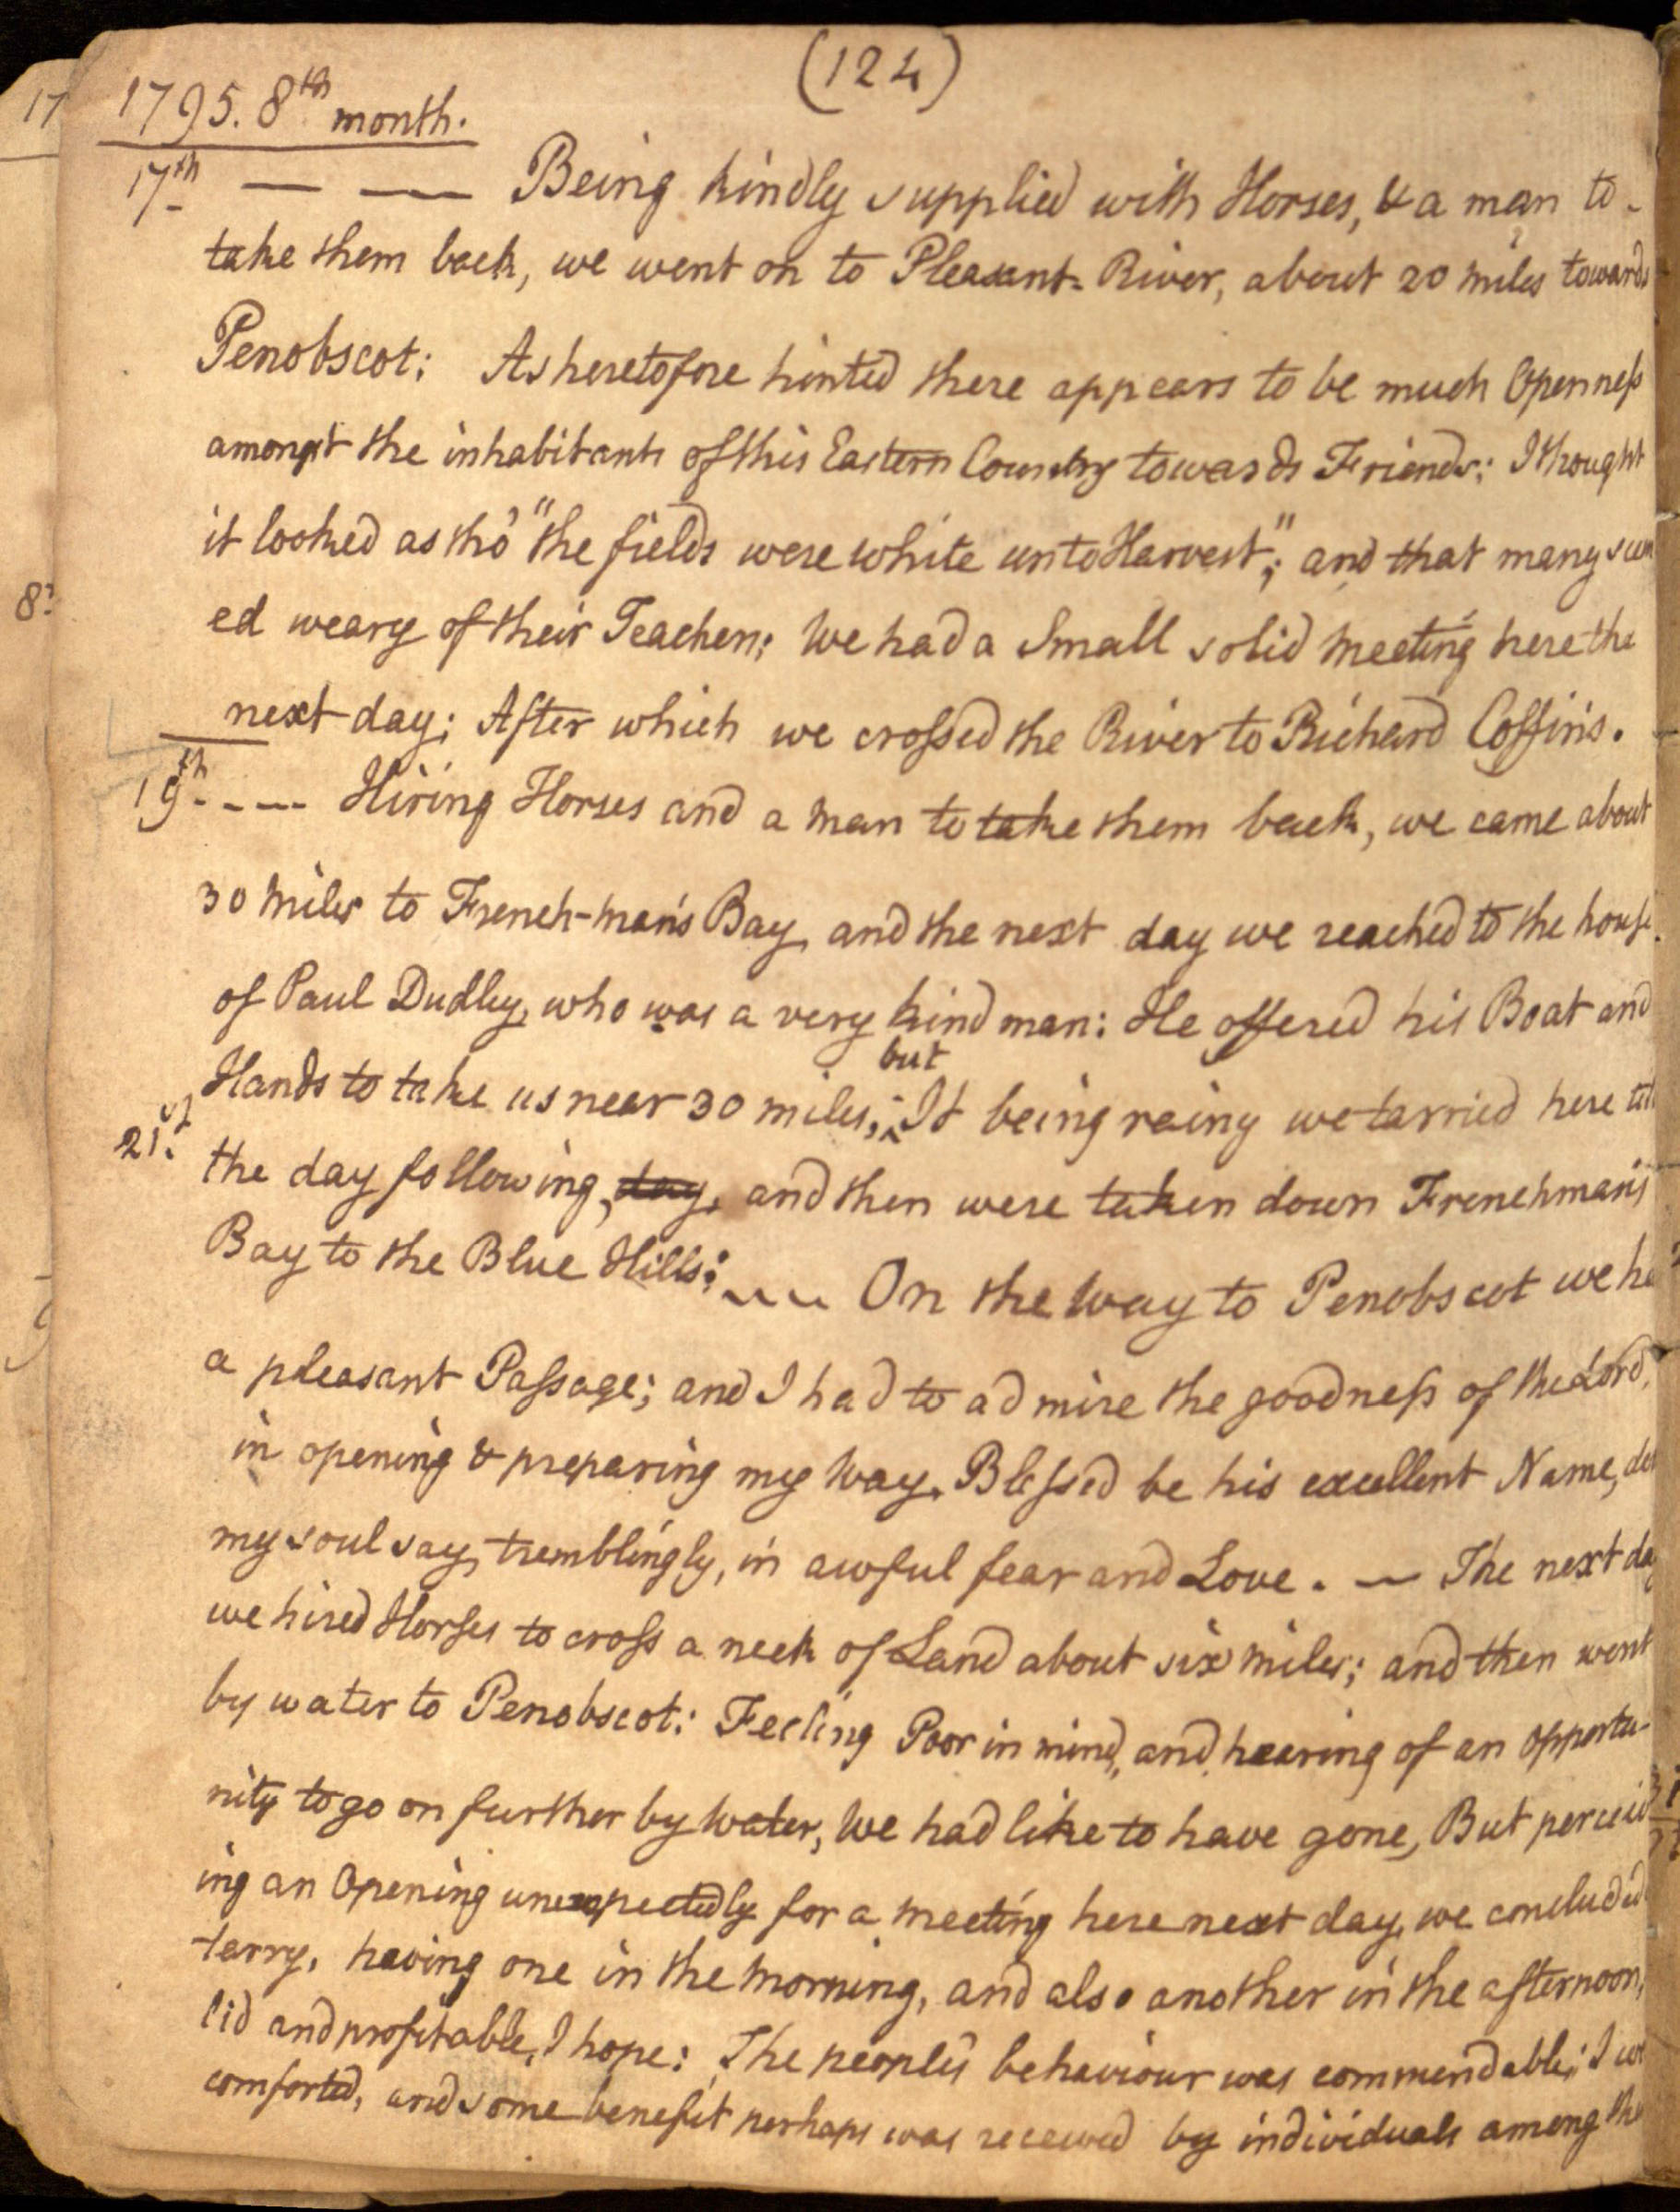 (124)
1795. 8th month.
17th — — Being kindly supplied with Horses, & a man to
take them back, we went on to Pleasant-River, about 20 miles towards
Penobscot: As heretofore hinted there appears to be much Openness
amongst the inhabitants of this Eastern Country towards Friends: I thought
it looked as tho' "the fields were white unto Harvest"; and that many seem
ed weary of their Teachers: We had a Small solid meeting here the
next day; After which we crossed the River to Richard Coffin's.
19th ---- Hiring Horses and a man to take them back, we came about
30 miles to French-man's Bay, and the next day we reached to the house
of Paul Dudley, who was a very kind man: He offered his Boat and
but
Hands to take us near 30 miles, ^ It being rainy we tarried here till
21st.
the day following, day, and then were taken down Frenchman's
Bay to the Blue Hills: ~~~ On the way to Penobscot we ha
a pleasant Passage; and I had to admire the goodness of the Lord,
in opening & preparing my way. Blessed be his excellent Name, do
my soul say, tremblingly, in awful fear and Love. — The next day
we hired Horses to cross a neck of Land about six miles; and then went
by water to Penobscot: Feeling Poor in mind, and hearing of an opportu-
nity to go on further by water, We had like to have gone, But perceiv
ing an Opening unexpectedly for a meeting here next day, we concluded
tarry, having one in the morning, and also another in the afternoon,
lid and profitable, I hope: The people's behaviour was commendable; I w
comforted, and some benefit perhaps was received by individuals among the
17